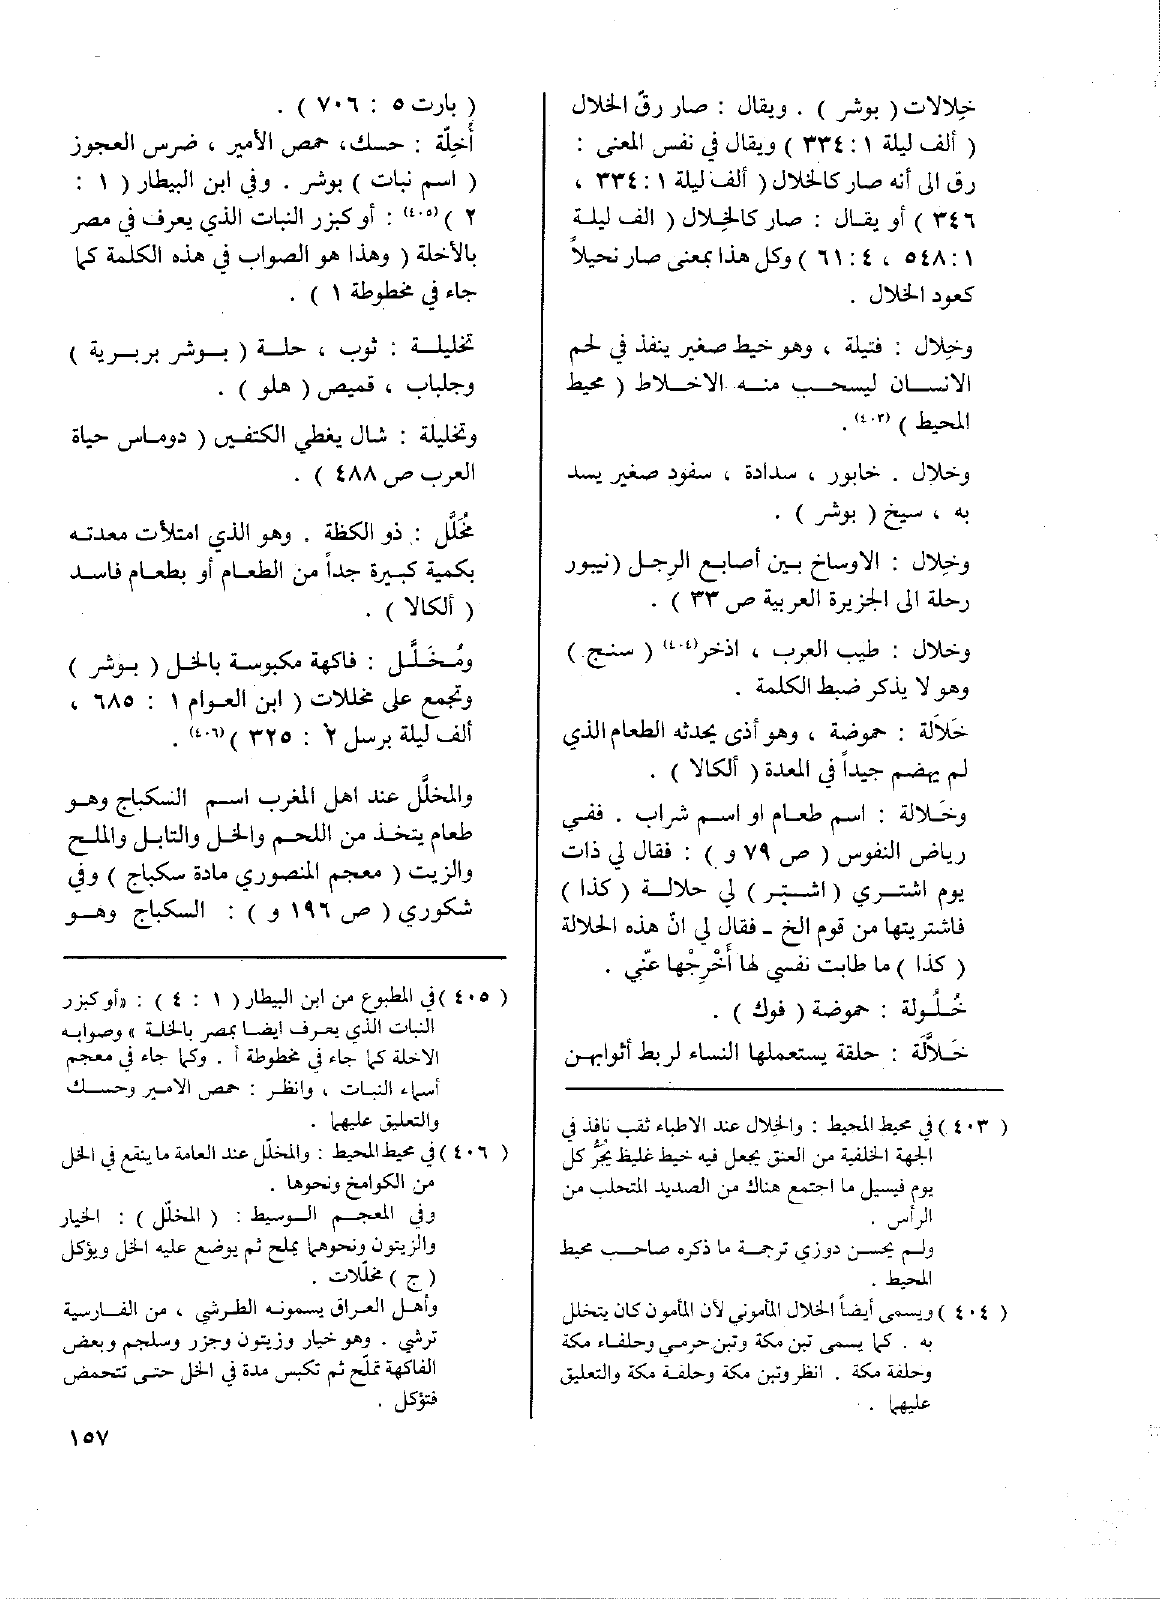 خِلالات ( بوشر ) . ويقال : صار رقّ الخلال
( ألف ليلة ١ : ٣٣٤ ) ويقال في نفس المعنى :
رق الى أنه صار كالخلال ( ألف ليلة ١ : ٣٣٤ ،
٣٤٦ ) أو يقال : صار كالخِلال ( الف ليلة
١ : ٥٤٨ ، ٤ : ٦١ ) وكل هذا بمعنى صار نحيلاً
كعود الخلال .
وخِلال : فتيلة ، وهو خيط صغير ينفذ في لحم
الانسان ليسحب منه الاخلاط ( محيط
المحيط ) (٤٠٣) .
وخلال . خابور ، سدادة ، سفود صغير يسد
به ، سيخ ( بوشر ) .
وخِلال : الاوساخ بين أصابع الرِجل ( نيبور
رحلة الى الجزيرة العربية ص ٣٣ ) .
وخلال : طيب العرب ، اذخر (٤٠٤) ( سنج )
وهو لا يذكر ضبط الكلمة .
خَلاَلة : حموضة ، وهو أذى يحدثه الطعام الذي
لم يهضم جيداً في المعدة ( ألكالا ) .
وخَلالة : اسم طعام او اسم شراب . ففي
رياض النفوس ( ص ٧٩ و ) : فقال لي ذات
يوم اشتري ( اشتر ) لي حلالة ( كذا )
فاشتريتها من قوم الخ ـ فقال لي انّ هذه الحلالة
( كذا ) ما طابت نفسي لها أَخْرِجْها عنّي .
خُلُولة : حموضة ( فوك ) .
خَلاَّلَة : حلقة يستعملها النساء لربط أثوابهن
( ٤٠٣ ) في محيط المحيط : والخلال عند الاطباء ثقب نافذ في
الجهة الخلفية من العنق يجعل فيه خيط غليظ يجُرُّ كل
يوم فيسيل ما اجتمع هناك من الصديد المتحلب من
الرأس .
ولم يحسن دوزي ترجمة ما ذكره صاحب محيط
المحيط .
( ٤٠٤ ) ويسمى أيضاً الخلال المأموني لأن المأمون كان يتخلل
به . كما يسمى تبن مكة وتبن حرمي وحلفاء مكة
وحلفة مكة . انظر وتبن مكة وحلفة مكة والتعليق
عليهما .
( بارت ٥ : ٧٠٦ ) .
أَخِلّة : حسك، حمص الأمير ، ضرس العجوز
( اسم نبات ) بوشر . وفي ابن البيطار ( ١ :
٢ ) (٤٠٥) : أو كبزر النبات الذي يعرف في مصر
بالأخلة ( وهذا هو الصواب في هذه الكلمة كما
جاء في مخطوطة ١ ) .
تخليلة : ثوب ، حلة ( بوشر بربرية )
وجلباب ، قميص ( هلو ) .
وتخليلة : شال يغطي الكتفين ( دوماس حياة
العرب ص ٤٨٨ ) .
مُخَلَّل : ذو الكظة . وهو الذي امتلأت معدته
بكمية كبيرة جداً من الطعام أو بطعام فاسد
( ألكالا ) .
ومُخَلَّل : فاكهة مكبوسة بالخل ( بوشر )
وتجمع على مخللات ( ابن العوام ١ : ٦٨٥ ،
ألف ليلة برسل ٢ : ٣٢٥ ) (٤٠٦) .
والمخلَّل عند اهل المغرب اسم السكباج وهو
طعام يتخذ من اللحم والخل والتابل والملح
والزيت ( معجم المنصوري مادة سكباج ) وفي
شكوري ( ص ١٩٦ و ) : السكباج وهو
( ٤٠٥ ) في المطبوع من ابن البيطار ( ١ : ٤ ) : « أو كبزر
النبات الذي يعرف ايضا بمصر بالخلة » وصوابه
الاخلة كما جاء في مخطوطة أ . وكما جاء في معجم
أسماء النبات ، وانظر : حمص الامير وحسك
والتعليق عليهما .
( ٤٠٦ ) في محيط المحيط : والمخلّل عند العامة ما ينقع في الخل
من الكوامخ ونحوها .
وفي المعجم الوسيط : ( المخلّل ) : الخيار
والزيتون ونحوهما يملح ثم يوضع عليه الخل ويؤكل
( ج ) مخلّلات .
وأهل العراق يسمونه الطرشي ، من الفارسية
ترشي . وهو خيار وزيتون وجزر وسلجم وبعض
الفاكهة تملّح ثم تكبس مدة في الخل حتى تتحمض
فتؤكل .
١٥٧